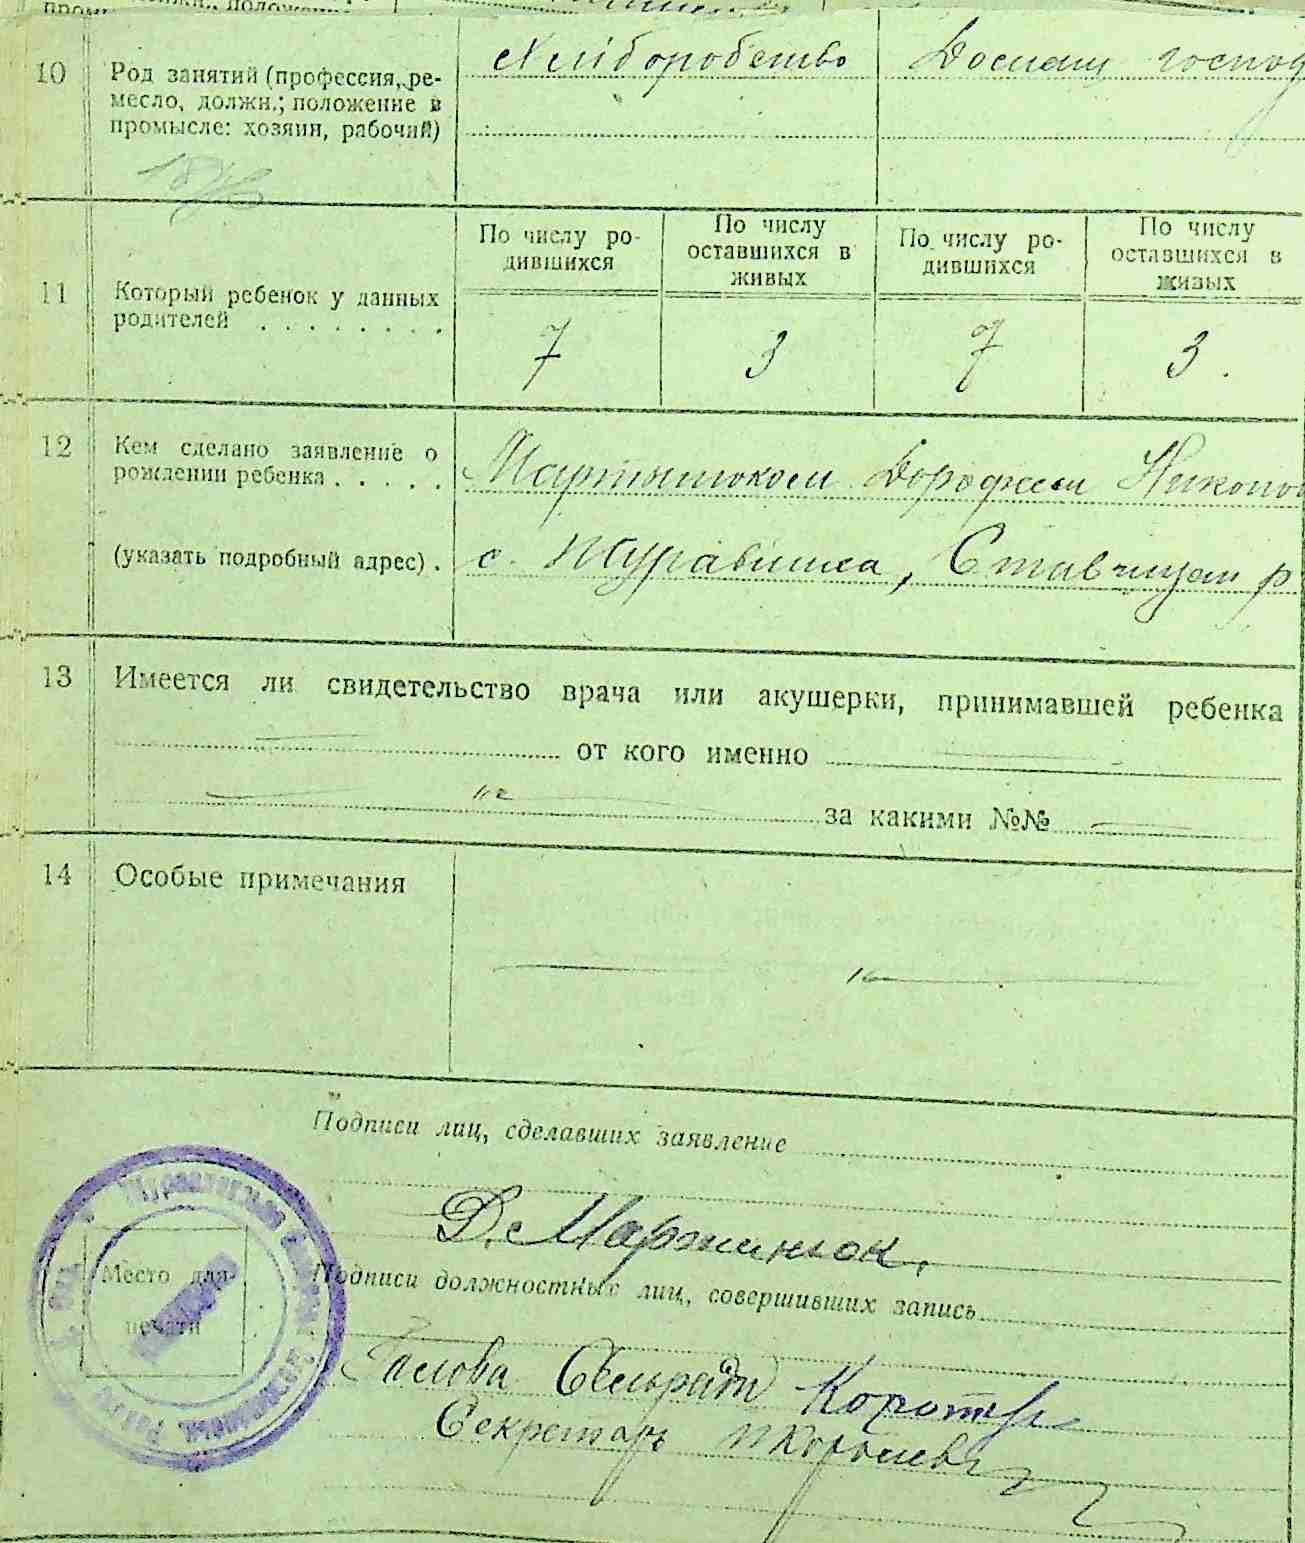 10 Род занятий (профессия, ре-
месло, должн.; положение в
промысле: хозяин, рабочий)
Хліборобство
Домашн господ
11 Который ребенок у данных
родителей . . . . . . . .
По числу ро-
дившихся
По числу
оставшихся в
живых
По числу ро-
дившихся
По числу
оставшихся в
живых
7 3 7 3.
12 Кем сделано заявление о
рождении ребенка . . . . .
Мартынюком Дорофеем
(указать подробный адрес) .
с. Журавлиха, Ставищан р
13 Имеется ли свидетельство врача или акушерки, принимавшей ребенка
от кого именно
за какими №№
14 Особые примечания
Подписи лиц, сделавших заявление
Д. Мартинюк.
Подписи должностных лиц, совершивших запись
Место для
печати
Голова Сельради
Секретарь